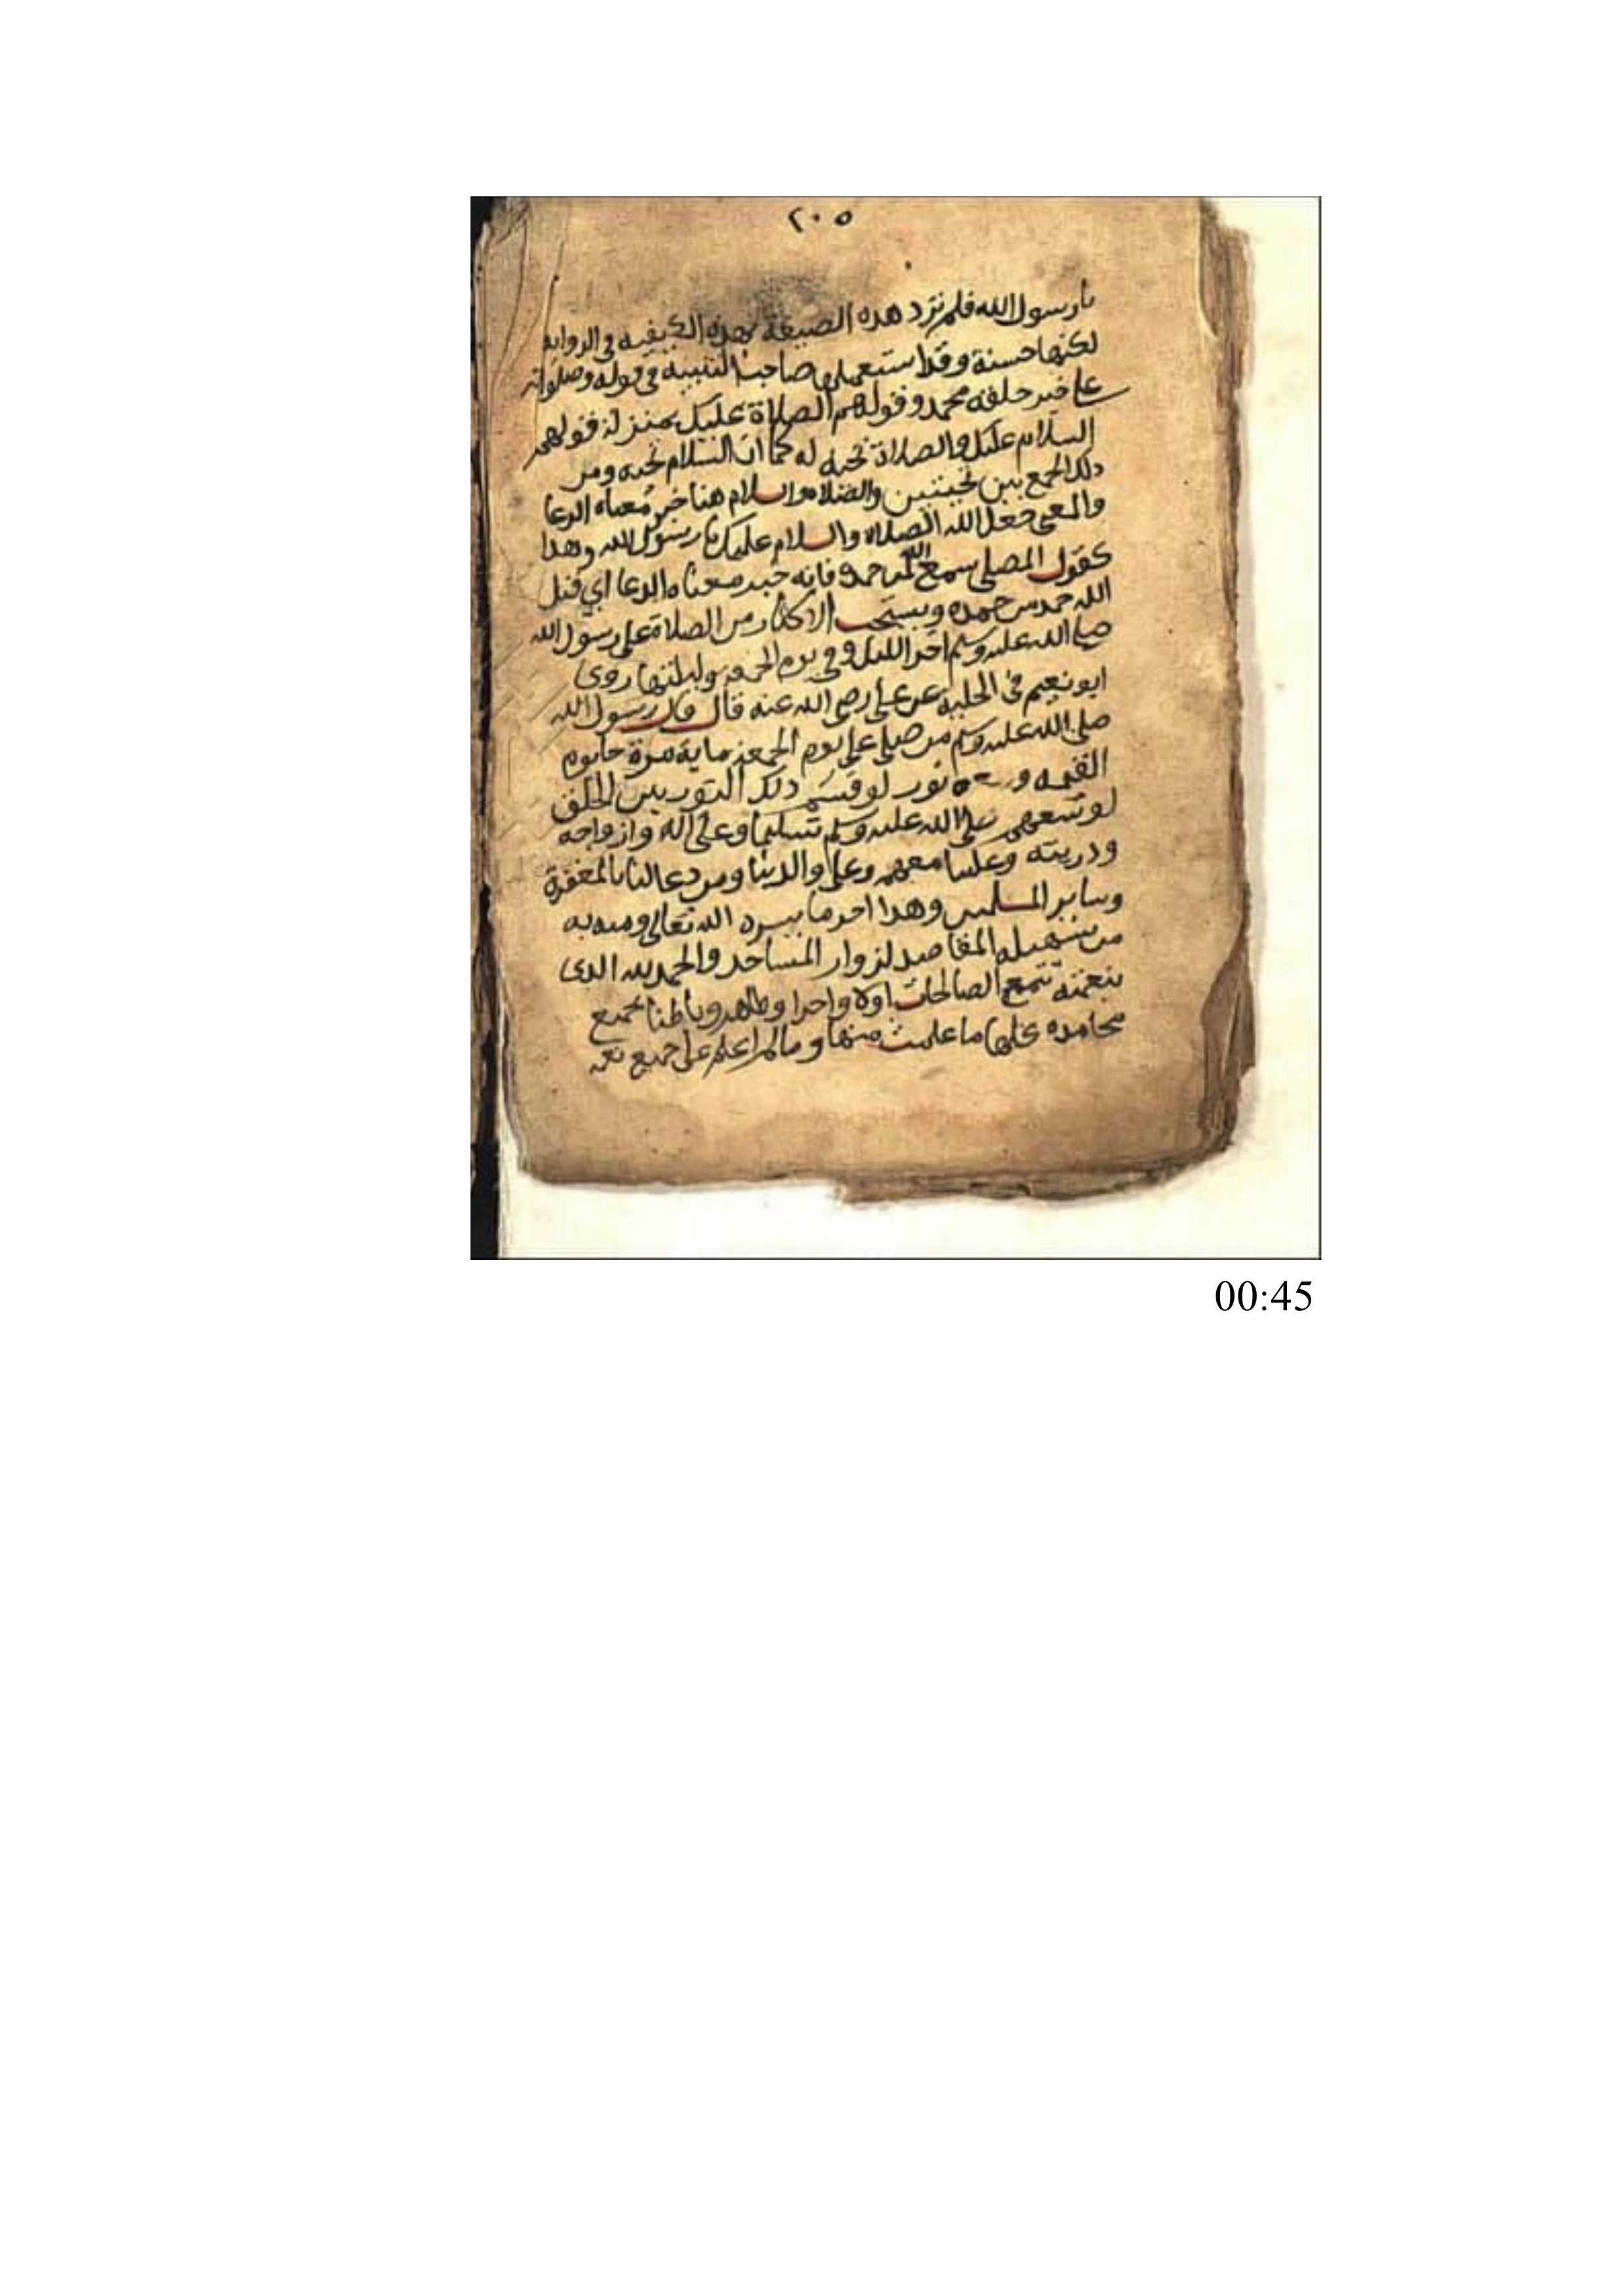 ٢٠٥
يا رسول الله فلم ترد هذه الصيغة بهذه الكيفيه في الروايه
لكنها حسنة وقد استعملها صاحب التنبيه في قوله وصلواته
على خير خلقه محمد وقولهم الصلاة عليك بمنزلة قولهم
السلام عليك والصلاة تحيه له كما ان السلام تحيه ومن
ذلك الجمع بين تحيتين والصلاه والسلام هنا خبر معناه الدعا
والمعنى جعل الله الصلاه والسلام عليك يا رسول الله وهذا
كقول المصلي سمع الله لمن حمده فانه خبر معناه الدعا اي قبل
الله حمد من حمده ويستحب الاكثار من الصلاة على رسول الله
صلى الله عليه وسلم اخر الليل وفي يوم الجمعه وليلتها روى
ابو نعيم في الحلية عن علي رضي الله عنه قال قال رسول الله
صلى الله عليه وسلم من صلى علي يوم الجمعة ماية مرة جا يوم
القيمه و نور لو قسم ذلك النور بين الخلق
لوسعهم صلى الله عليه وسلم تسليما وعلى اله وازواجه
وذريته وعلينا معهم وعلى والدينا ومن دعا لنا بالمغفرة
وساير المسلمين وهذا اخر ما يسره الله تعالى ومن به
من تسهيل المقاصد لزوار المساجد والحمد لله الذي
بنعمته تتم الصالحات اولا واخرا وظاهرا وباطنا بجميع
محامده كلها ما علمت منها وما لم اعلم على جميع نعمه
00:45